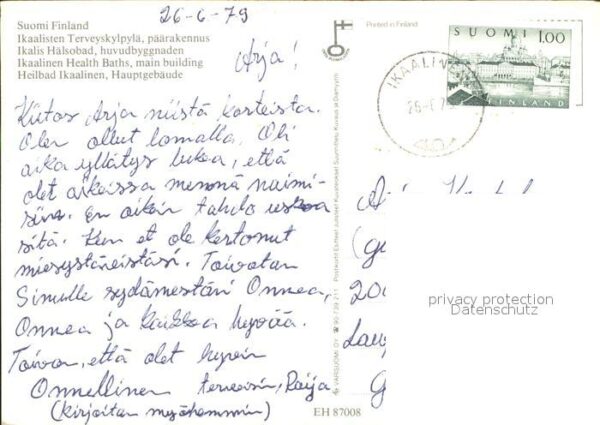 26-6-79
Suomi Finland
Ikaalisten Terveyskylpylä, päärakennus
Ikalis Hälsobad, huvudbyggnaden
Ikaalinen Health Baths, main building
Heilbad Ikaalinen, Hauptgebäude
Printed in Finland
SUOMI 1.00
FINLAND
Arja!
Kiitos Arja niistä korteista.
Olen ollut lomalla. Oli
aika yllätys lukea, että
olet aikeissa mennä naimi-
siin. En oikein tahdo uskoa
sitä. Kun et ole kertonut
miesystävistäsi. Toivotan
Sinulle sydämestäni Onnea,
Onnea ja kaikkea hyvää.
Toivon, että olet hyvin
Onnellinen terveisin, Raija
(kirjoitan myöhemmin)
200
privacy protection
Datenschutz
EH 87008